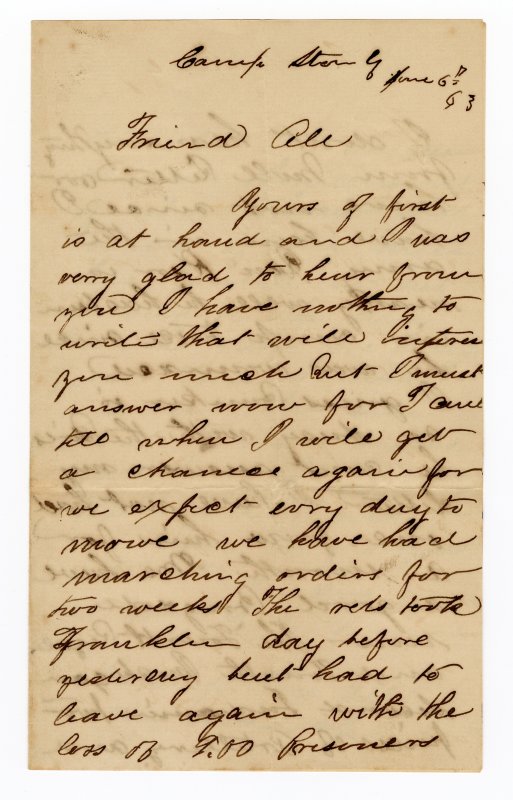 Camp Stanly June 6th
63
Friend Ale
Yours of first
is at hand and I was
verry glad to hear from
you I have nothing to
write that will interes
you much but I must
answer now for I
when I will get
a chance again for
we expect evry day to
move we have had
marching orders for
two weeks The rebs took
Franklin day before
yesterday but had to
leave again with the
loss of Prisoners